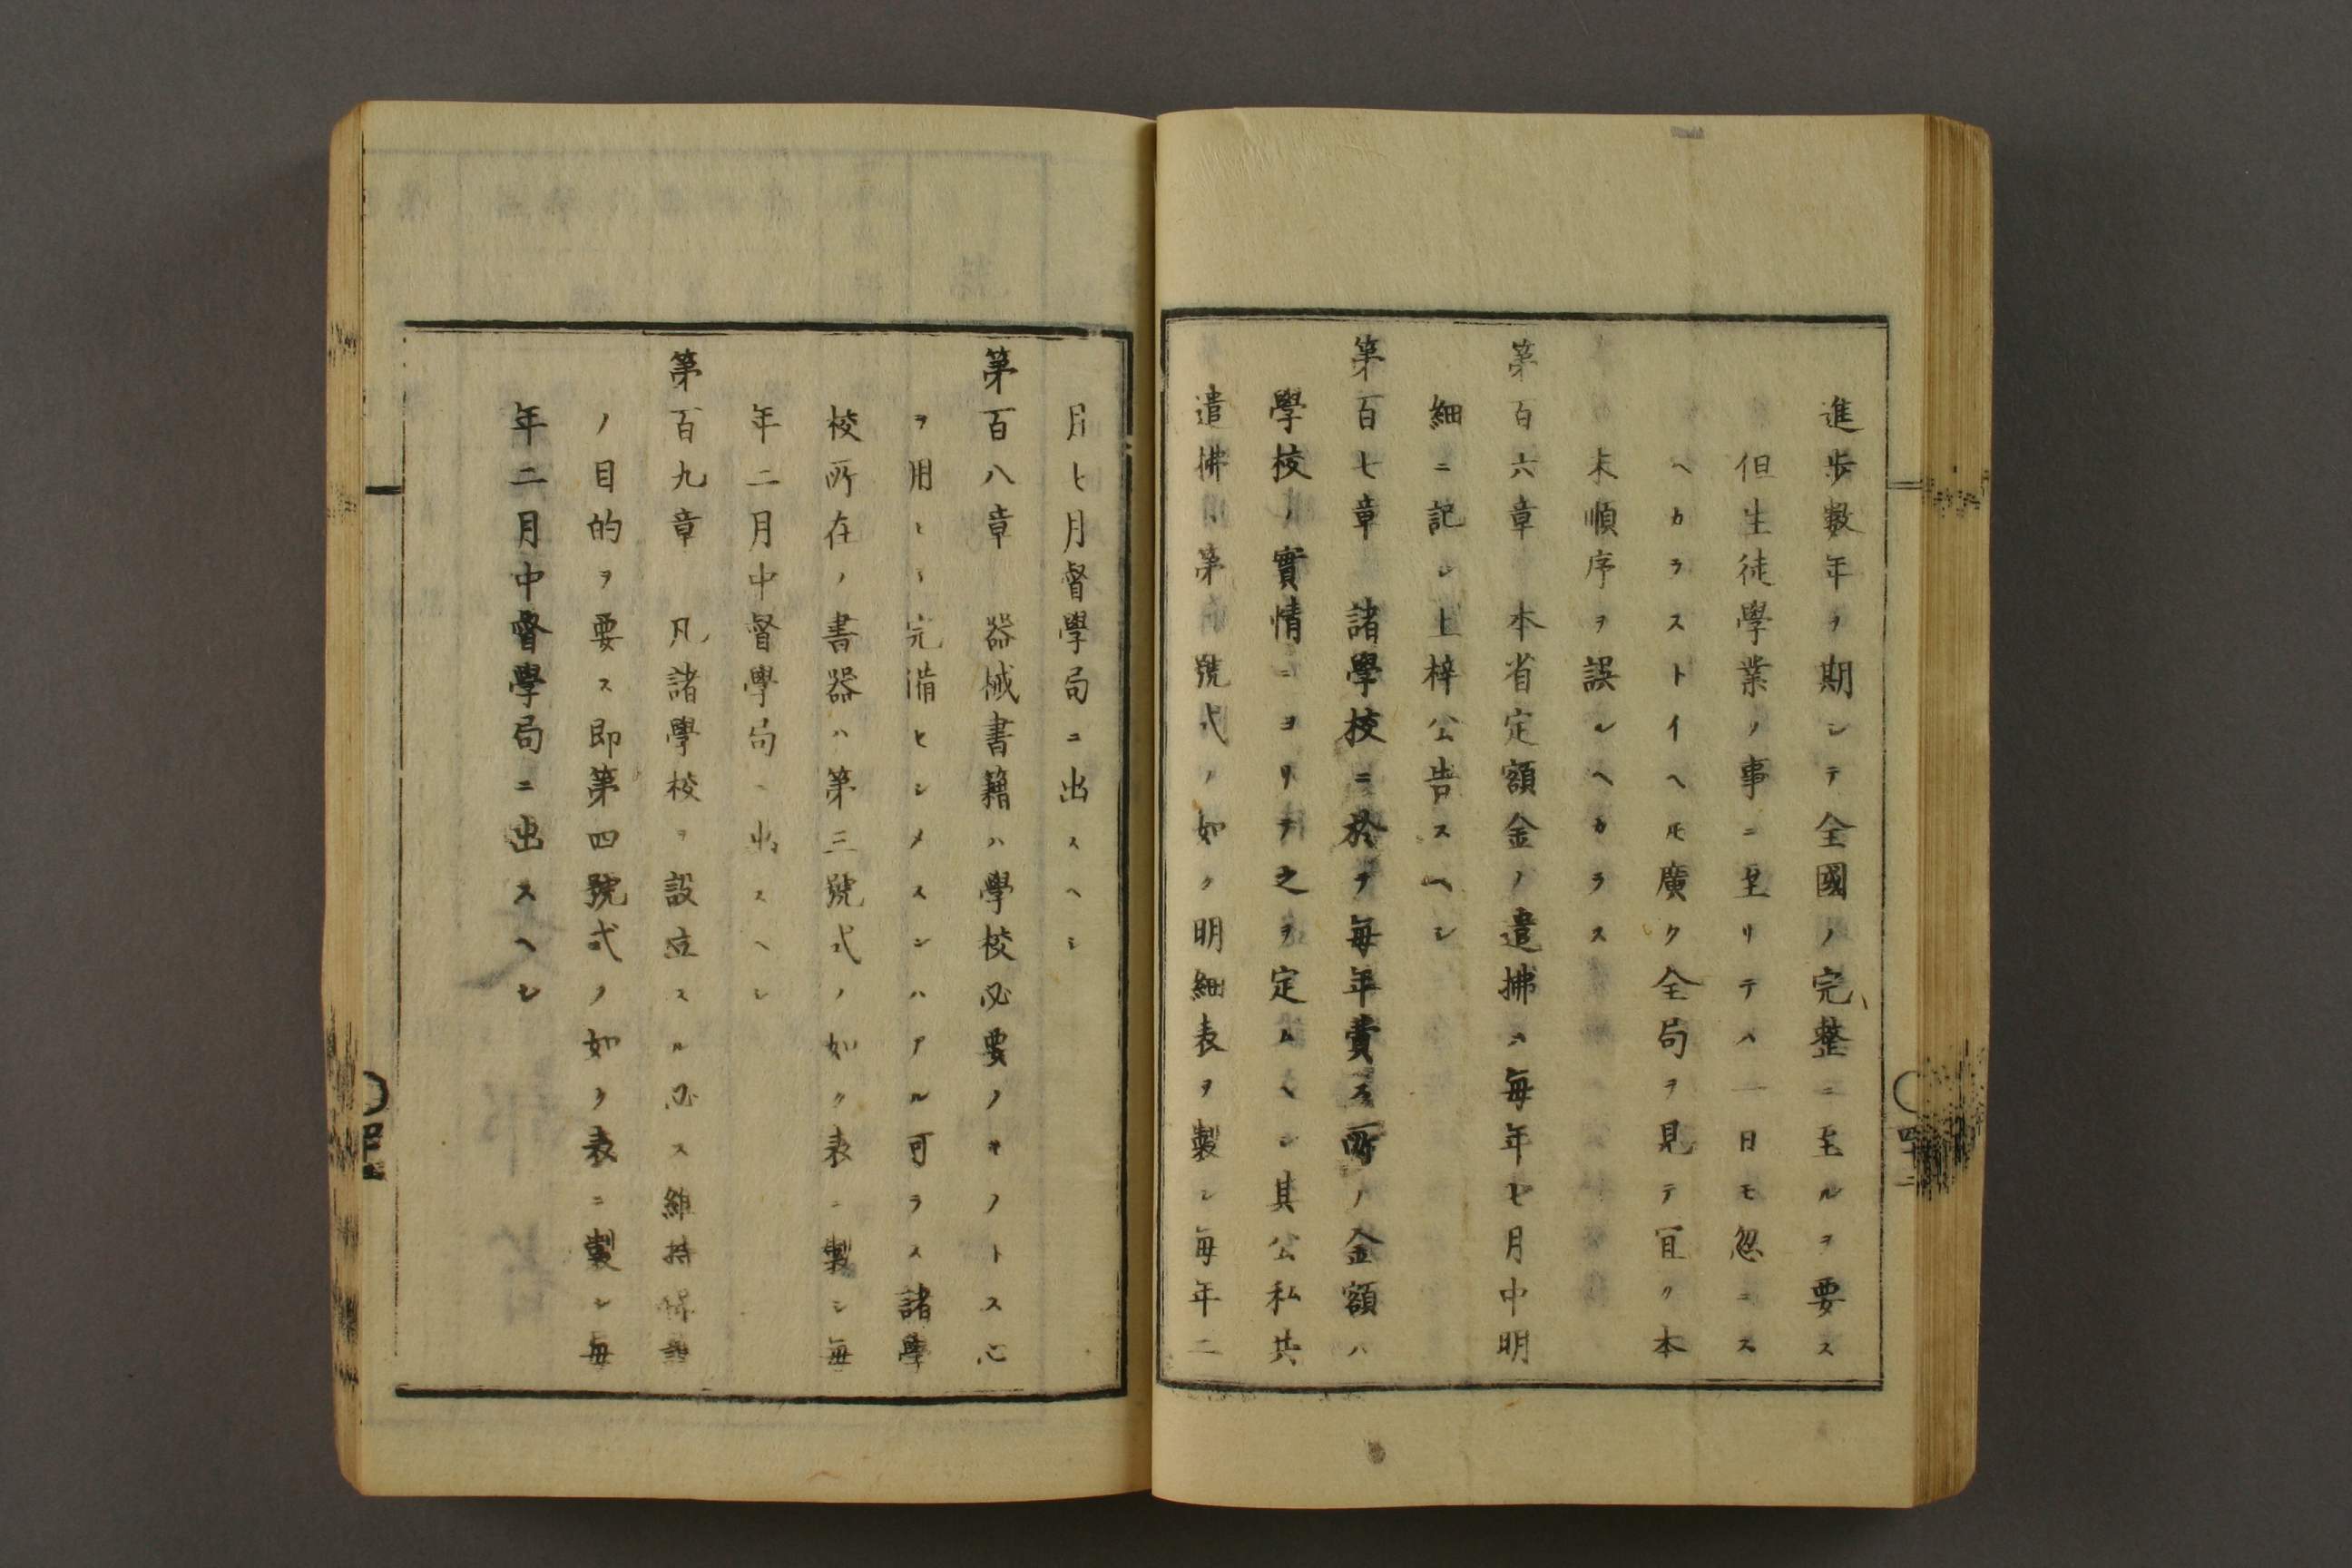 進歩數年ヲ期シテ全國ノ完整ニ至ルヲ要ス
但生徒學業ノ事ニ至リテハ一日モ忽ニス
ヘカラストイヘ𪜈廣ク全局ヲ見テ宜ク本
末順序ヲ誤ルヘカラス
第百六章 本省定額金ノ遣拂ハ毎年七月中明
細ニ記シ上梓公告スヘシ
第百七章 諸學校ニ於テ毎年費ス所ノ金額ハ
學校ノ實情ニヨリテ之ヲ定ムヘシ其公私共
遣拂ハ第 號式ノ如ク明細表ヲ製シ毎年二
四十二
月七月督學局ニ出スヘシ
第百八章 器械書籍ハ學校必要ノモノトス心
ヲ用ヒ 完備セシメスンハアル可ラス諸學
校所在ノ書器ハ第三號式ノ如ク表ニ製シ毎
年二月中督學局ヘ出スヘシ
第百九章 凡諸學校ヲ設立スル必ス維持保護
ノ目的ヲ要ス即第四號式ノ如ク表ニ製シ毎
年二月中督學局ニ出スヘシ